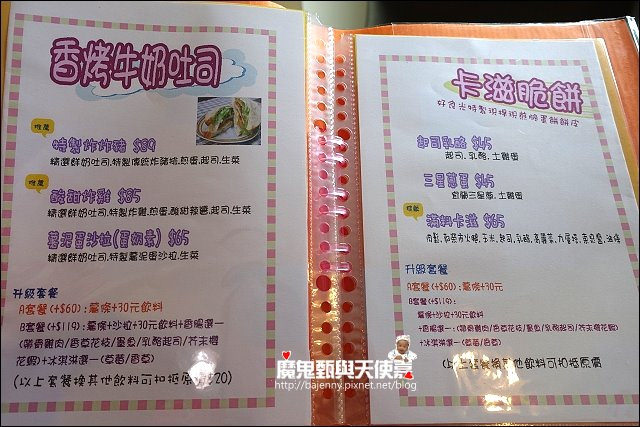 香烤牛奶吐司
推薦
特製炸炸豬 $89
精選鮮奶吐司,特製傳統炸豬排,煎蛋,起司,生菜
推薦
酸甜炸雞 $85
精選鮮奶吐司,特製炸雞,煎蛋,酸甜辣醬,起司,生菜
薯泥蛋沙拉(蛋奶素) $65
精選鮮奶吐司,特製薯泥蛋沙拉,生菜
升級套餐
A套餐(+$60):薯條+30元飲料
B套餐(+$119):薯條+沙拉+30元飲料+香腸選一
(帶骨雞肉/香草花枝/墨魚/乳酪起司/芥末櫻
花蝦)+冰淇淋選一(草莓/香草)
(以上套餐換其他飲料可扣抵原價$20)
卡滋脆餅
好食光特製現桿現煎脆蛋餅餅皮
起司乳酪 $45
起司,乳酪,土雞蛋
三星蔥蛋 $45
宜蘭三星蔥,土雞蛋
推薦
滿料卡滋 $65
升級套餐
A套餐(+$60):薯條+30元
B套餐(+$119):
薯條+沙拉+30元飲料
+香腸選一:(帶骨雞肉/香草花枝/墨魚/乳酪起司/芥末櫻花蝦)
+冰淇淋選一(草莓/香草)
(以上套餐換其他飲料可扣抵原價
魔鬼甄與天使嘉
http://bajenny.pixnet.net/blog